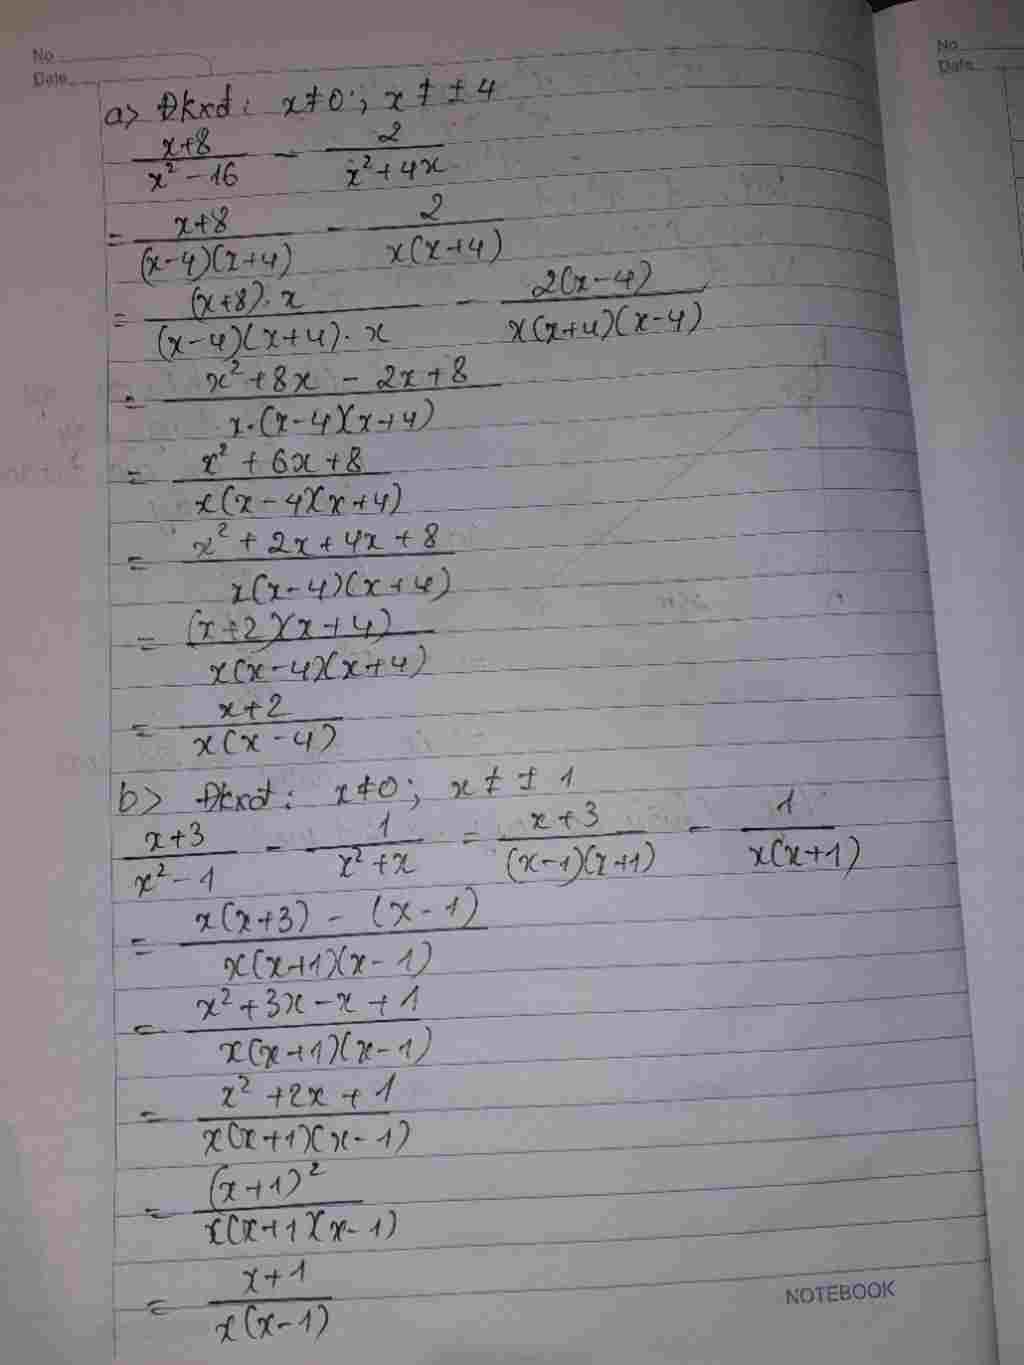 No
Date
No
Date
a> Đkxđ: x≠0; x ≠ ±4
(x+8)/(x²-16) - 2/(x²+4x)
= (x+8)/((x-4)(x+4)) - 2/(x(x+4))
= ((x+8).x)/((x-4)(x+4).x) - (2(x-4))/(x(x+4)(x-4))
= (x²+8x - 2x+8)/(x.(x-4)(x+4))
= (x²+6x+8)/(x(x-4)(x+4))
= (x²+2x+4x+8)/(x(x-4)(x+4))
= ((x+2)(x+4))/(x(x-4)(x+4))
= (x+2)/(x(x-4))
b> Đkxđ: x≠0; x ≠ ±1
(x+3)/(x²-1) - 1/(x²+x) = (x+3)/((x-1)(x+1)) - 1/(x(x+1))
= (x(x+3) - (x-1))/(x(x+1)(x-1))
= (x²+3x-x+1)/(x(x+1)(x-1))
= (x²+2x+1)/(x(x+1)(x-1))
= (x+1)²/(x(x+1)(x-1))
= (x+1)/(x(x-1))
NOTEBOOK